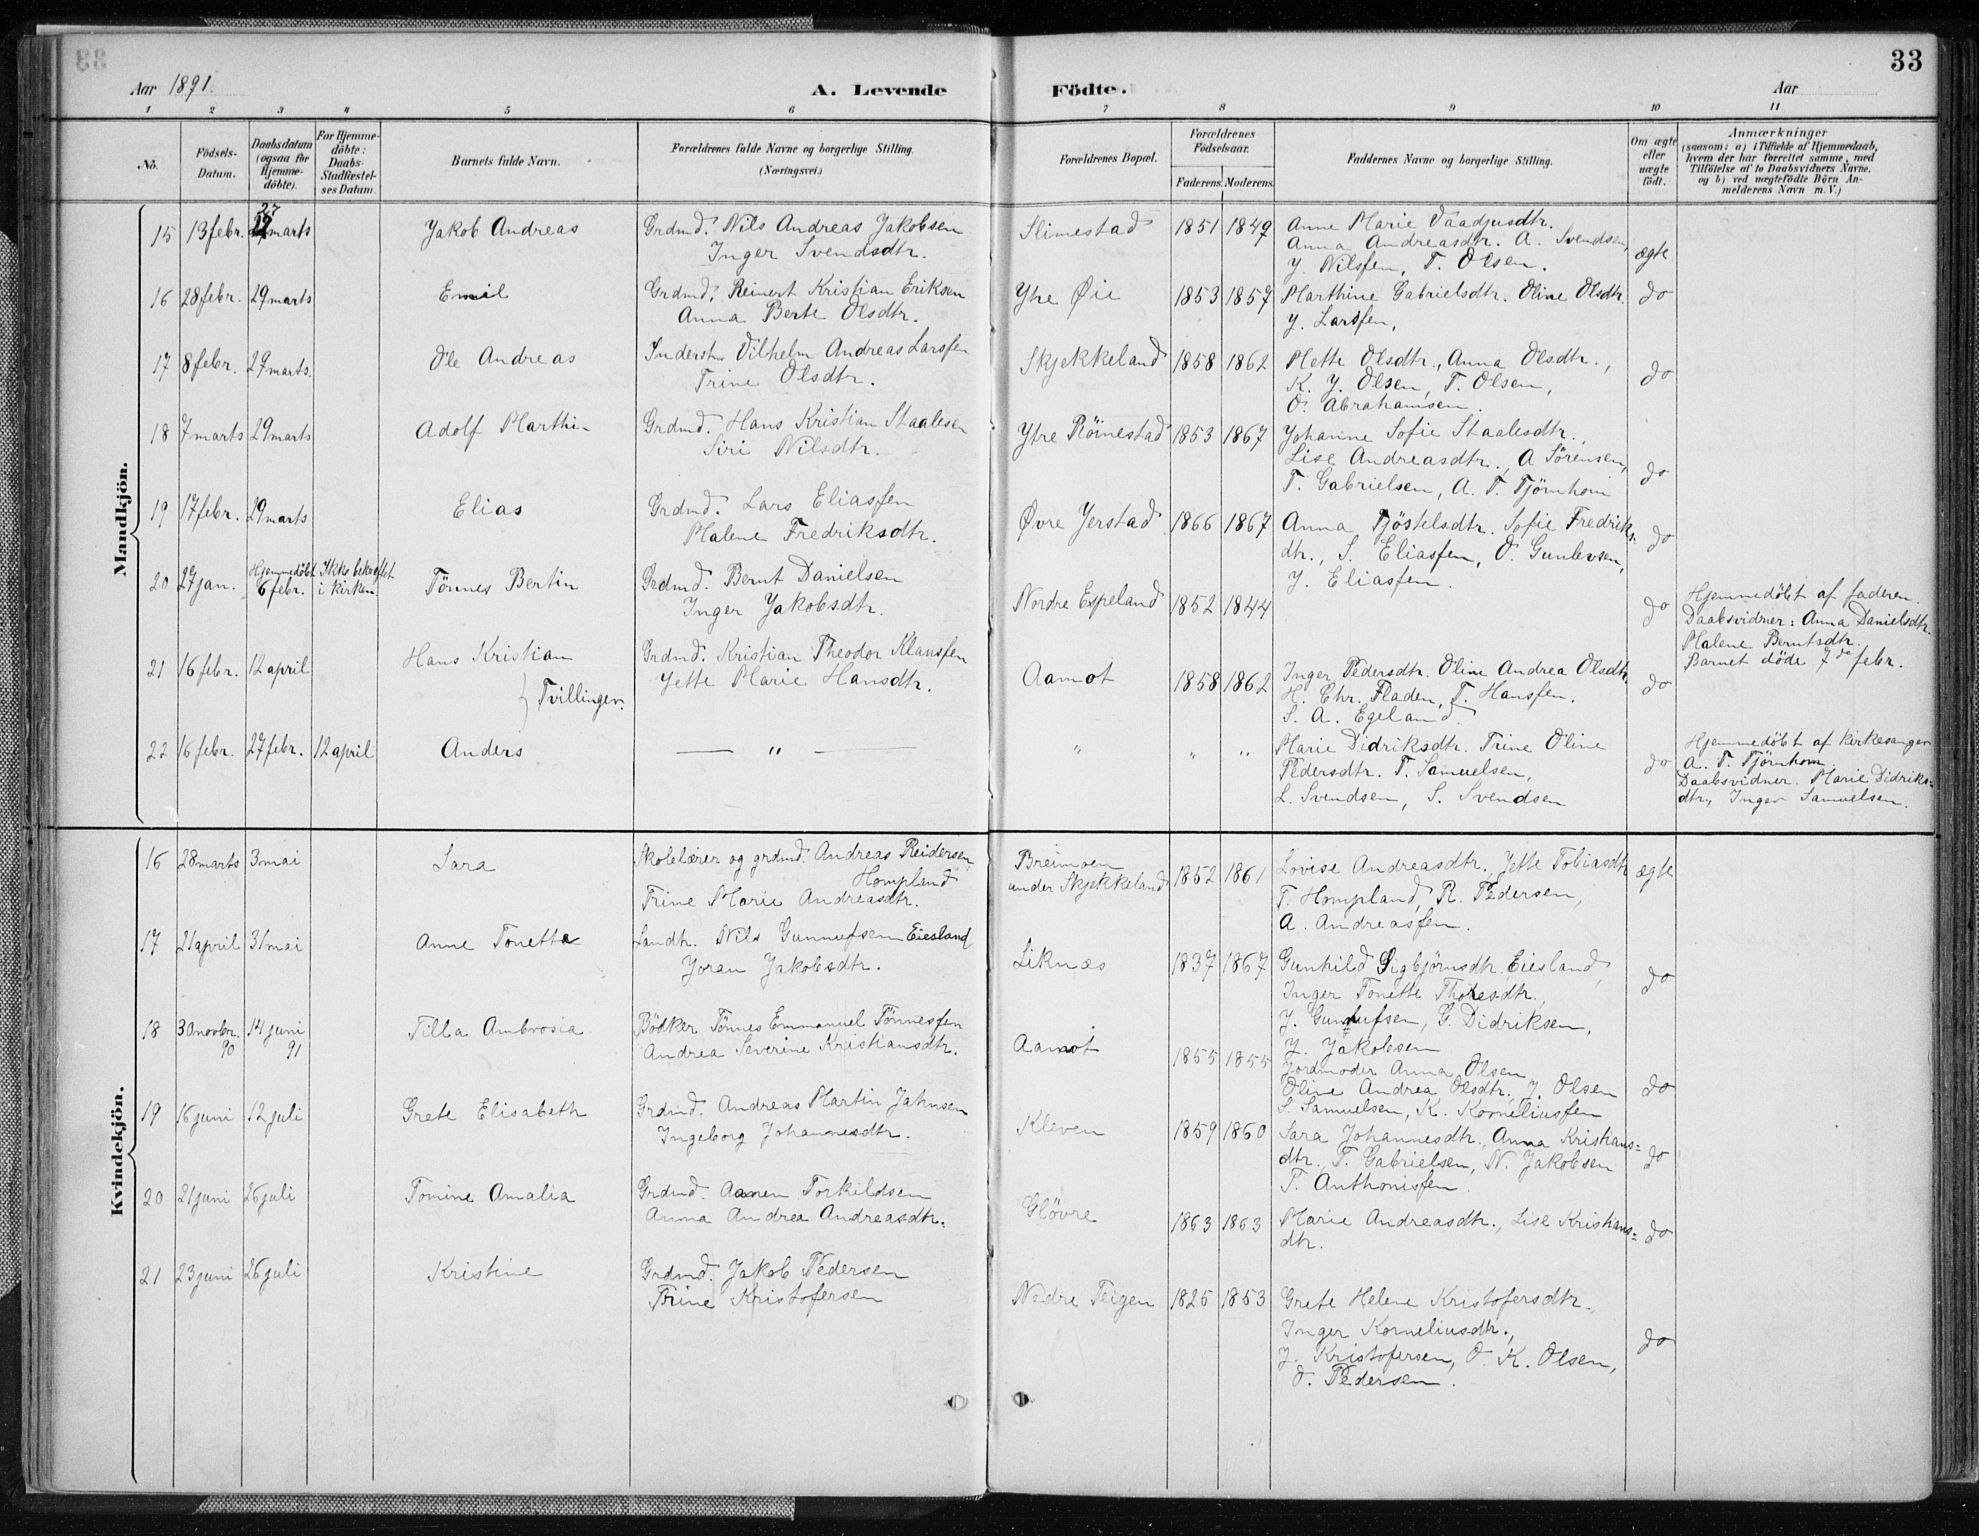 33
Aar 1891.
A. Levende Födte.
Aar
1 2 3 4 5 6 7 8 9 10 11
No.
Födsels-Datum.
Daabsdatum (ogsaa for Hjemme-döbte).
For Hjemme-döbte: Daabs-Stadfæstel-ses Datum.
Barnets fulde Navn.
Forældrenes fulde Navne og borgerlige Stilling. (Næringsvei.)
Forældrenes Bopæl.
Forældrenes Födselsaar.
Faderens. Moderens.
Faddernes Navne og borgerlige Stilling.
Om ægte eller uægte födt.
Anmærkninger
(saasom: a) i Tilfælde af Hjemmedaab,
hvem der har forrettet samme, med
Tilföielse af to Daabsvidners Navne.
og b) ved uægtefödte Börn An-
melderens Navn m. V.)
Mandkjön.
15 13 febr. 27 marts Jakob Andreas Grdmd. Nils Andreas Jakobsen Slimestad 1851 1849 Anne Marie Vaadjusdtr.
Inger Svendsdtr. Anna Andreasdtr. A. Svendsen, ægte
J. Nilsfen, T. Olsen.
16 28 febr. 29 marts Emil Grdmd. Reinert Kristian Eriksen Ytre Øie 1853 1857 Marthine Gabrielsdtr. Oline Olsdtr. do
Anna Berte Olsdtr. J. Larsfen,
17 8 febr. 29 marts. Ole Andreas Inderst. Vilhelm Andreas Larsfen Skjekkeland 1858 1862 Mette Olsdtr., Anna Olsdtr.,
Trine Olsdtr. K. J. Olsen, T. Olsen, do
O. Abrahamsen.
18 7 marts 29 marts Adolf Marthin Grdmd. Hans Kristian Staalesen Ytre Röinestad 1853 1867 Johanne Sofie Staalesdtr.,
Siri Nilsdtr. Lise Andreasdtr., A Sörensen, do
T. Gabrielsen, A. T. Tjörnhom
19 17 febr. 29 marts Elias Grdmd. Lars Eliasfen Øvre Jerstad 1866 1867 Anna Tjöstelsdtr. Sofie Fredriks-
Malene Fredriksdtr. dtr., S. Eliasfen, O. Gunlevsen, do
J. Eliasfen.
20 27 jan. Hjemmedöbt 6 febr. Ikke bekræftet i kirken Tönnes Bertin Grdmd. Bernt Danielsen Nordre Espeland 1852 1844 do Hjemmedöbt af faderen.
Inger Jakobsdtr. Daabsvidner: Anna Danielsdtr.
Malene Berntsdtr.
Barnet döde 7de febr.
21 16 febr. 12 april Hans Kristian Grdmd. Kristian Theodor Klausfen Aamot 1858 1862 Inger Pedersdtr. Oline Andrea Olsdtr. do
Jette Marie Hansdtr. H. Chr. Fladen, T. Hansfen.
} Tvillinger. S. A. Egeland.
22 16 febr. 27 febr. 12 april Anders — " — " " " Marie Didriksdtr. Trine Oline do Hjemmedöbt af kirkesanger
Pedersdtr. T. Samuelsen, A. T. Tjörnhom
L. Svendsen, S. Svendsen Daabsvidner. Marie Didriks=
dtr., Inger Samuelsen.
Kvindekjön.
16 28 marts 3 mai Sara Skolelærer og grdmd. Andreas Reidersen Breimoen 1852 1861 Lovise Andreasdtr. Jette Tobiasdtr ægte
Hompland under Skjekkeland T. Hompland, R. Pedersen,
Trine Marie Andreasdtr. A. Andreasfen.
17 21 april 31 mai Anne Tonette Landh. Nils Gunnufsen Eiesland Liknæs 1837 1867 Gunhild Sigbjörnsdtr. Eiesland, do
Joran Jakobsdtr. Inger Tonette Thoresdtr.,
J. Gunnufsen, G. Didriksen,
J. Jakobsen
18 30 novbr. 90 14 juni 91 Tilla Ambrosia Bödker Tönnes Emmanuel Tönnesfen Aamot 1855 1855 Jordmoder Anna Olsen
Andrea Severine Kristiansdtr. Oline Andrea Olsdtr, J. Olsen do
S. Samuelsen, K. Korneliusfen
19 16 juni 12 juli Grete Elisabeth Grdmd. Andreas Martin Jahnsen Kleven 1859 1860 Sara Johannesdtr., Anna Kristians=
Ingeborg Johannesdtr. dtr., T. Gabrielsen, N. Jakobsen do
T. Anthonisfen.
20 21 juni 26 juli Tomine Amalia Grdmd. Aanen Torkildsen Glövre 1863 1863 Marie Andreasdtr., Lise Kristians= do
Anna Andrea Andreasdtr. dtr.
21 23 juni 26 juli Kristine Grdmd. Jakob Pedersen Nedre Teigen 1825 1853 Grete Helene Kristofersdtr.,
Trine Kristofersen Inger Korneliusdtr., do
J. Kristofersen, O. K. Olsen,
O. Pedersen.